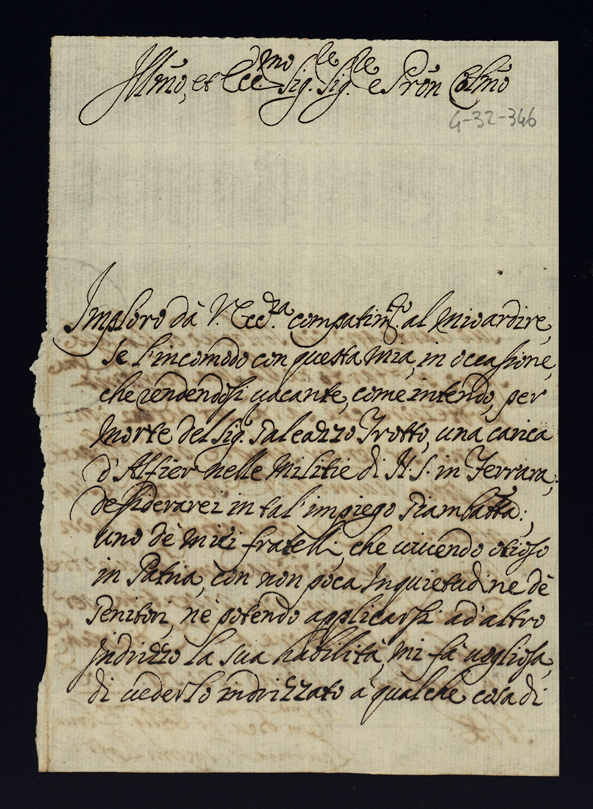 Ill.mo, et Ecc.mo Sig.re Sig.re e Pron Col.mo
4-32-346
Imploro dà V. Ecc.za compatim.to al mio ardire,
se l'incomodo con questa mia, in occasione,
che rendendosi vacante, come intendo, per
morte del Sig. Galeazzo Trotto, una carica
d'Alfier nelle Militie di N. S. in Ferrara,
desiderarei in tal impiego Giambatta:
uno de miei fratelli, che vivendo otioso
in Patria, con non poca Inquietudine dè
Genitori, nè potendo applicarsi ad'altro
Indrizzo la sua habilità, mi fà vogliosa
di vederlo indrizzato à qualche cosa di